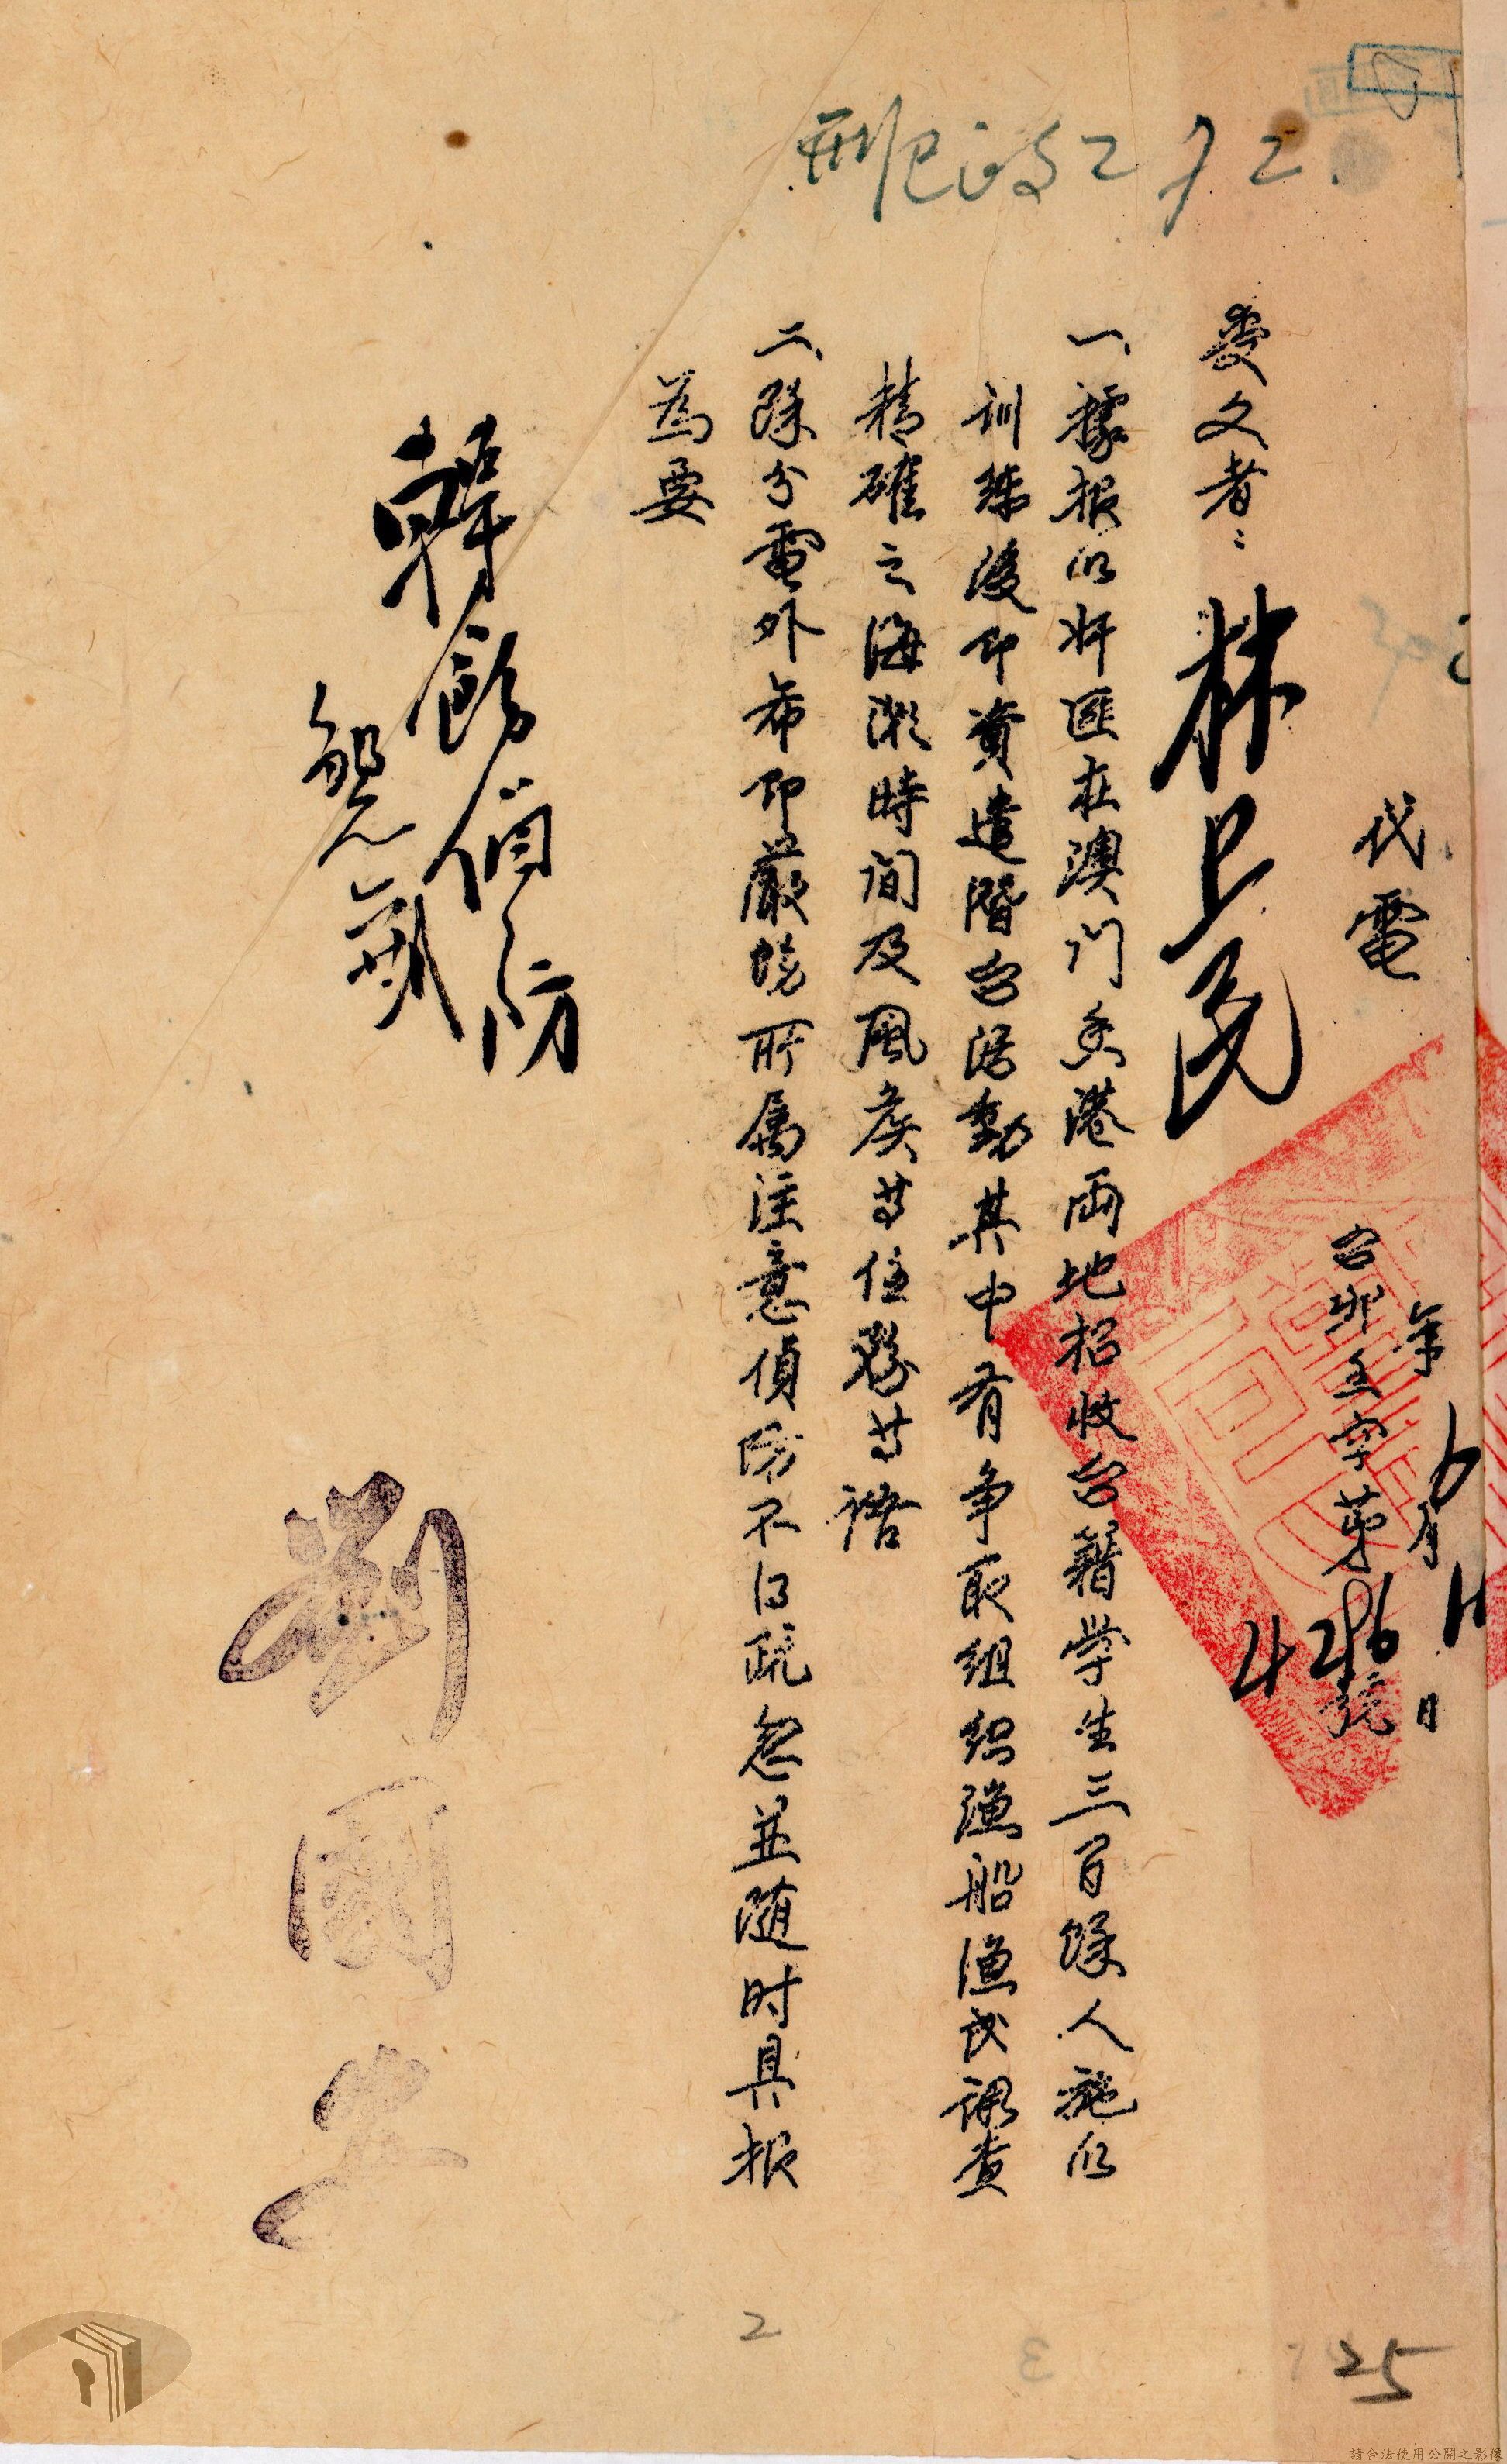 代電
年6月11日
台北至字第4296號
受文者：林上民
一、據报以奸匪在澳门香港両地招收台籍学生三百餘人施以
训练後即資遣潛台活動其中有争取组织漁船漁民調查
精確之海潮時间及風候等任務等语
二、除分電外希即嚴饬所属注意偵防不以疏忽並随时具报
為要
轉飭偵防
劉國
2
25
請合法使用公開之影像